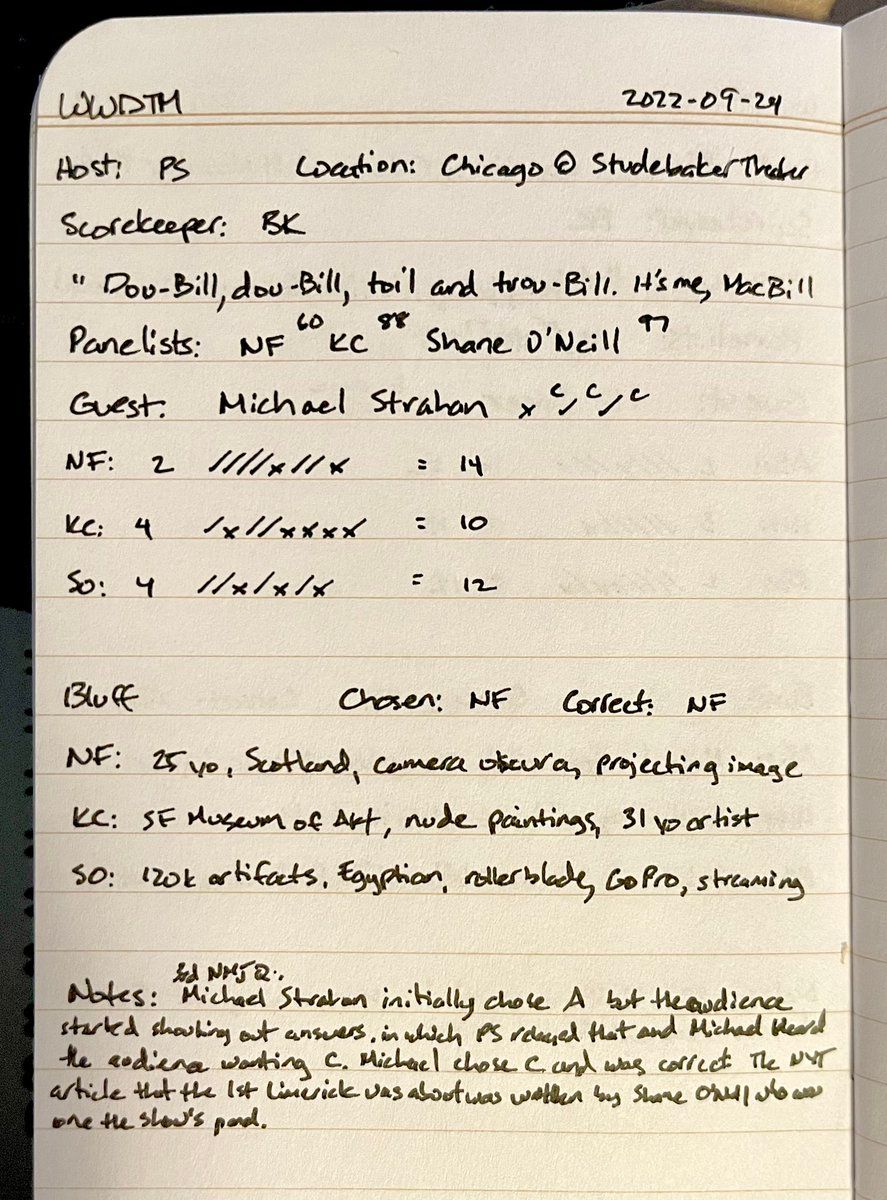 WWDTM 2022-09-24
Host: PS Location: Chicago @ Studebaker Theater
Scorekeeper: BK
" Dou-Bill, dou-Bill, toil and trou-Bill. It's me, MacBill
Panelists: NF 60 KC 88 Shane O'Neill 97
Guest: Michael Strahan x C / C / C
NF: 2 ////x//x = 14
KC: 4 /x//xxxx = 10
SO: 4 //x/x/x = 12
Bluff Chosen: NF Correct: NF
NF: 25 yo, Scotland, camera obscura, projecting image
KC: SF Museum of Art, nude paintings, 31 yo artist
SO: 120k artifacts, Egyptian, rollerblade, GoPro, streaming
NMJ Q.
Notes: Michael Strahan initially chose A but the audience
started shouting out answers, in which PS relayed that and Michael heard
the audience wanting C. Michael chose C and was correct. The NYT
article that the 1st limerick was about was written by Shane O'Neill who was
one the show's panel.